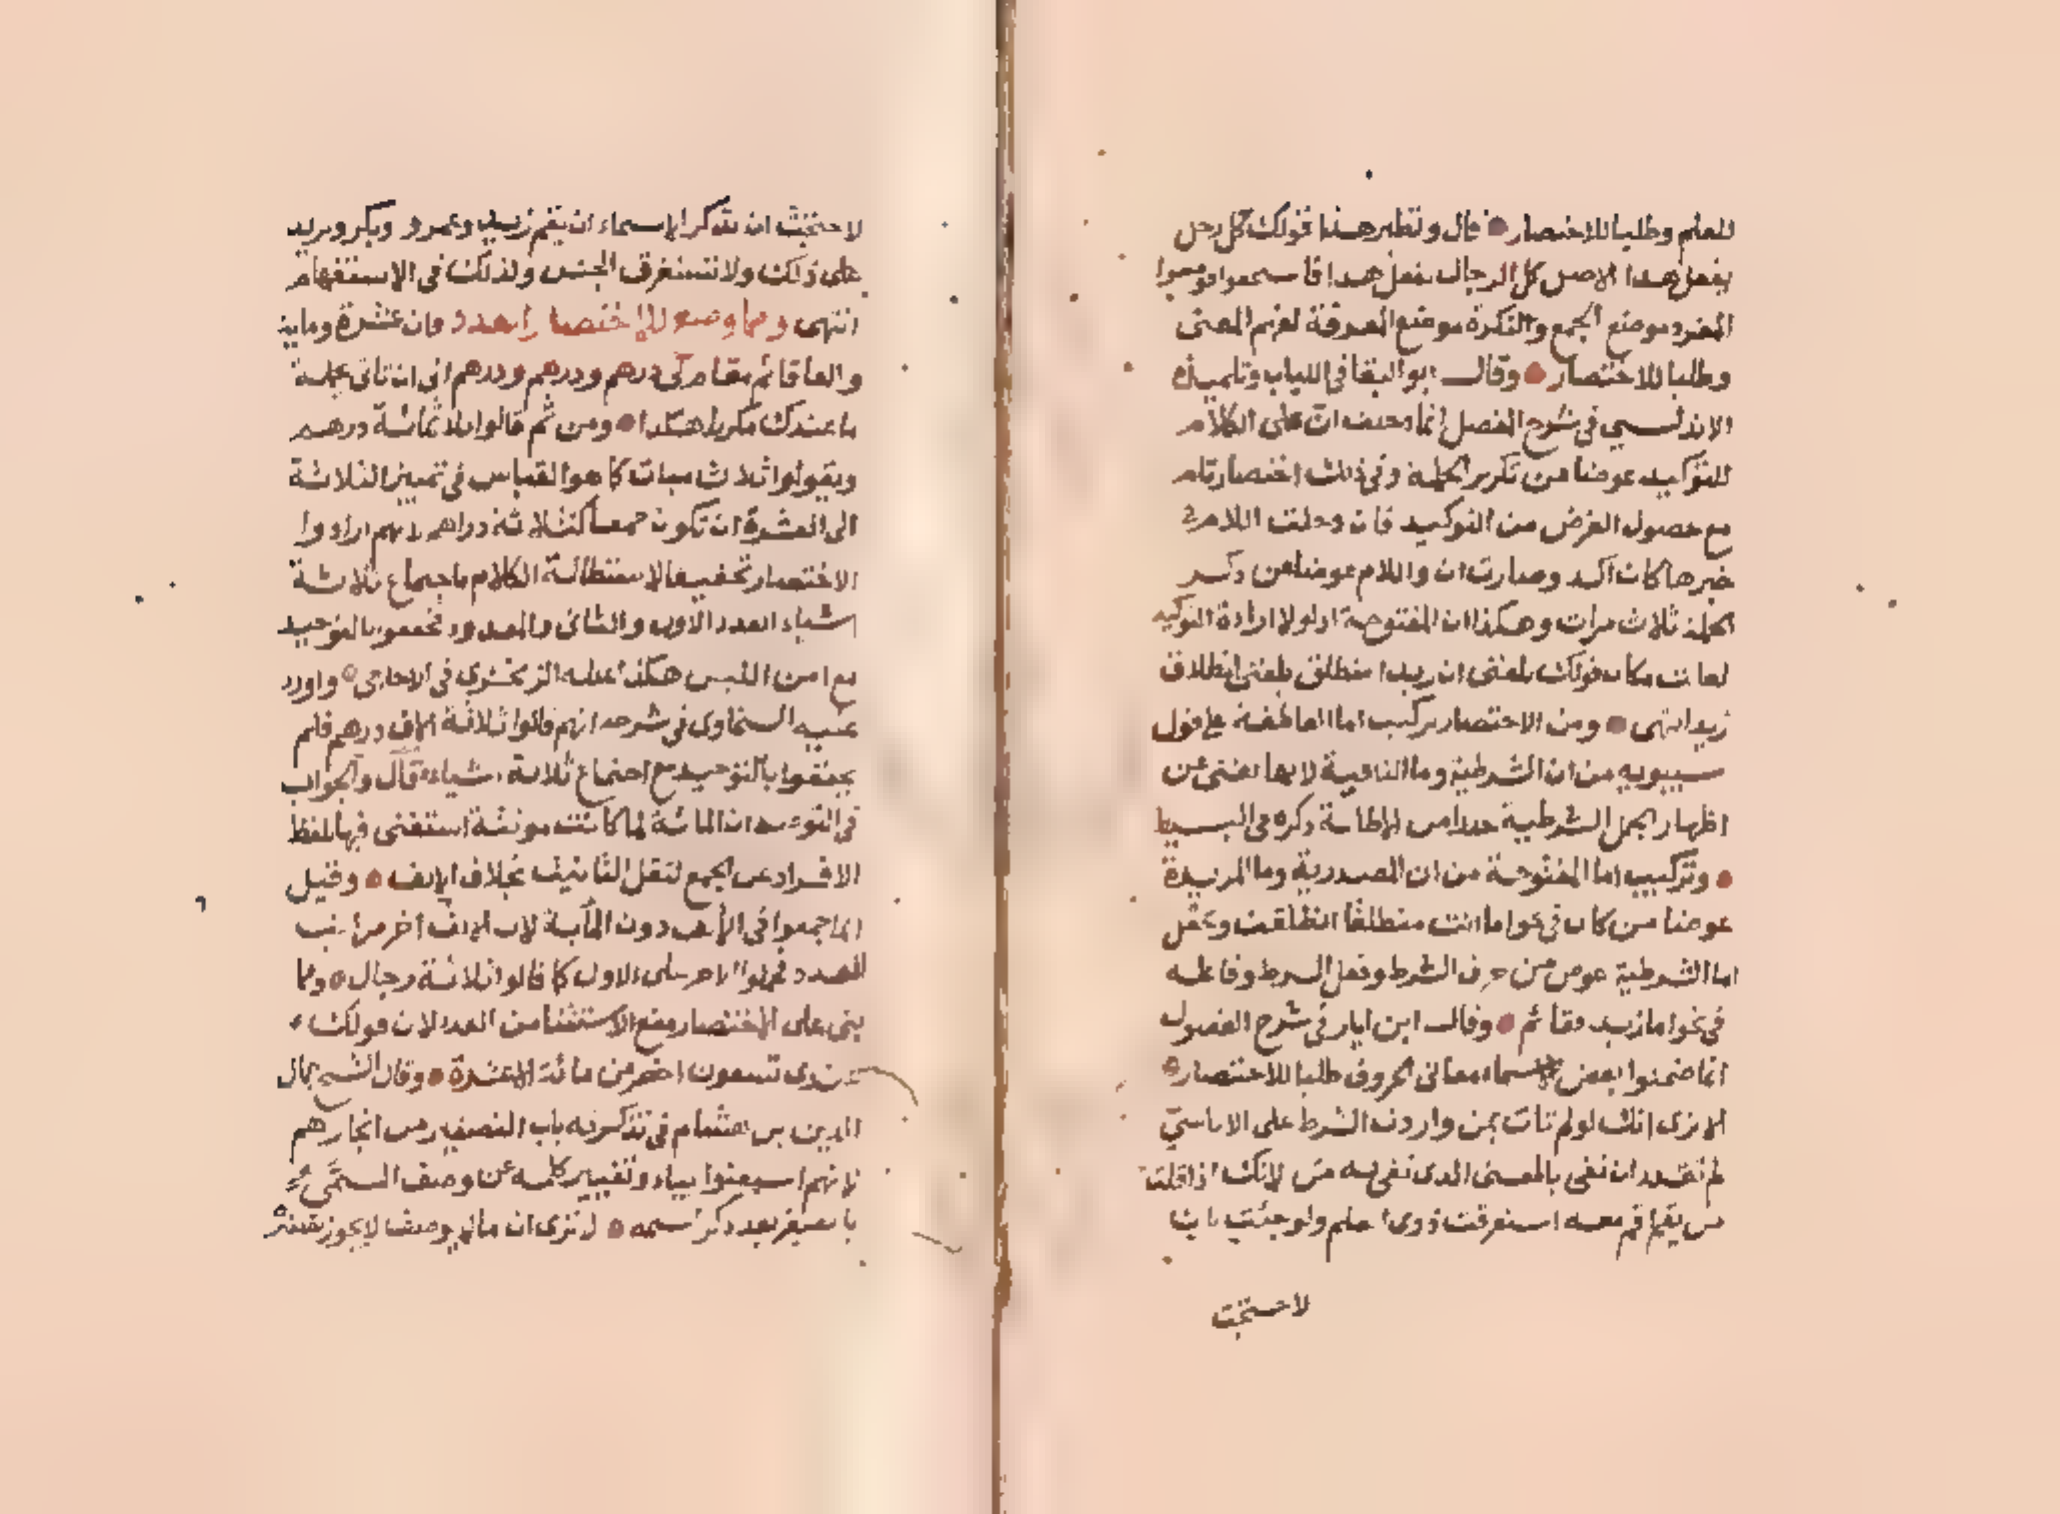 للعلم وطلبا للاختصار قال ونظير هذا قولك كل رجل
يفعل هذا الاصل كل الرجال يفعل هذا فاستمعوا فوضعوا
المفرد موضع الجمع والنكرة موضع المعرفة لفهم المعنى
وطلبا للاختصار وقال ابو البقا في اللباب وتلميذه
الاندلسي في شرح المفصل انما دخلت ان على الكلام
للتوكيد عوضا من تكرير الجملة وفي ذلك اختصار تام
مع حصول الغرض من التوكيد فان دخلت اللام في
خبرها كان آكد وصارت ان واللام عوضا عن ذكر
الجملة ثلاث مرات وهكذا ان المفتوحة اذ لولا ارادة التوكيد
لقلت مكان قولك بلغني ان زيدا منطلق بلغني انطلاق
زيد انتهى ومن الاختصار تركيب اما العاطفة على قول
سيبويه من ان الشرطية وما النافية لانها تغني عن
اظهار الجمل الشرطية حذرا من الاطالة ذكره في البسيط
وتركيب اما المفتوحة من ان المصدرية وما المزيدة
عوضا من كان في نحو اما انت منطلقا انطلقت وجعل
اما الشرطية عوض من حرف الشرط وفعل الشرط وفاعله
في نحو اما زيد فقائم وقال ابن اياز في شرح الفصول
انما ضمنوا بعض الاسماء معاني الحروف طلبا للاختصار
الا ترى انك لو لم تات بمن واردت الشرط على الاناسي
لم تقدر ان تفي بالمعنى الذي تفي به من لانك اذا قلت
من يقم اقم معه استغرقت ذوي العلم ولو جئت بان
لاحتجت
لاحتجت ان تذكر الاسماء ان يقم زيد وعمرو وبكر وتزيد
على ذلك ولا تستغرق الجنس وكذلك في الاستفهام
انتهى ومما وضع للاختصار العدد فان عشرة ومايه
والفا قائم مقام درهم ودرهم ودرهم الى ان تاتي بجملة
ما عندك مكررا هكذا ومن ثم قالوا ثلاثمائة درهم
ويقولوا ثلاث ميات كما هو القياس في تمييز الثلاثة
الى العشرة ان تكون جمعا كثلاثة دراهم لانهم ارادوا
الاختصار تخفيفا لاستطالة الكلام باجتماع ثلاثة
اشياء العدد الاول والثاني والمعدود فخففوا بالتوحيد
مع امن اللبس هكذا علله الزمخشري في الاحاجي واورد
عليه السخاوي في شرحه انهم قالوا ثلاثة الاف درهم فلم
يخففوا بالتوحيد مع اجتماع ثلاثة اشياء قال والجواب
في التوحيد ان المائة لما كانت مونثة استغنى فيها بلفظ
الافراد عن الجمع لثقل التانيث بخلاف الالف وقيل
انما جمعوا في الألف دون المأية لان الالف آخر مراتب
العدد فحملوا الاخر على الاول كما قالوا ثلاثة رجال ومما
بني على الاختصار منع الاستثنا من العدد لان قولك
عندي تسعون اخصر من مائة الا عشرة وقال الشيخ جمال
الدين بن هشام في تذكرته باب التصغير من انجازهم
لانهم استغنوا بياء وتغيير كلمه عن وصف المسمى
بالصغر بعد ذكر اسمه الا ترى ان ما لا يوصف لا يجوز تصغيره